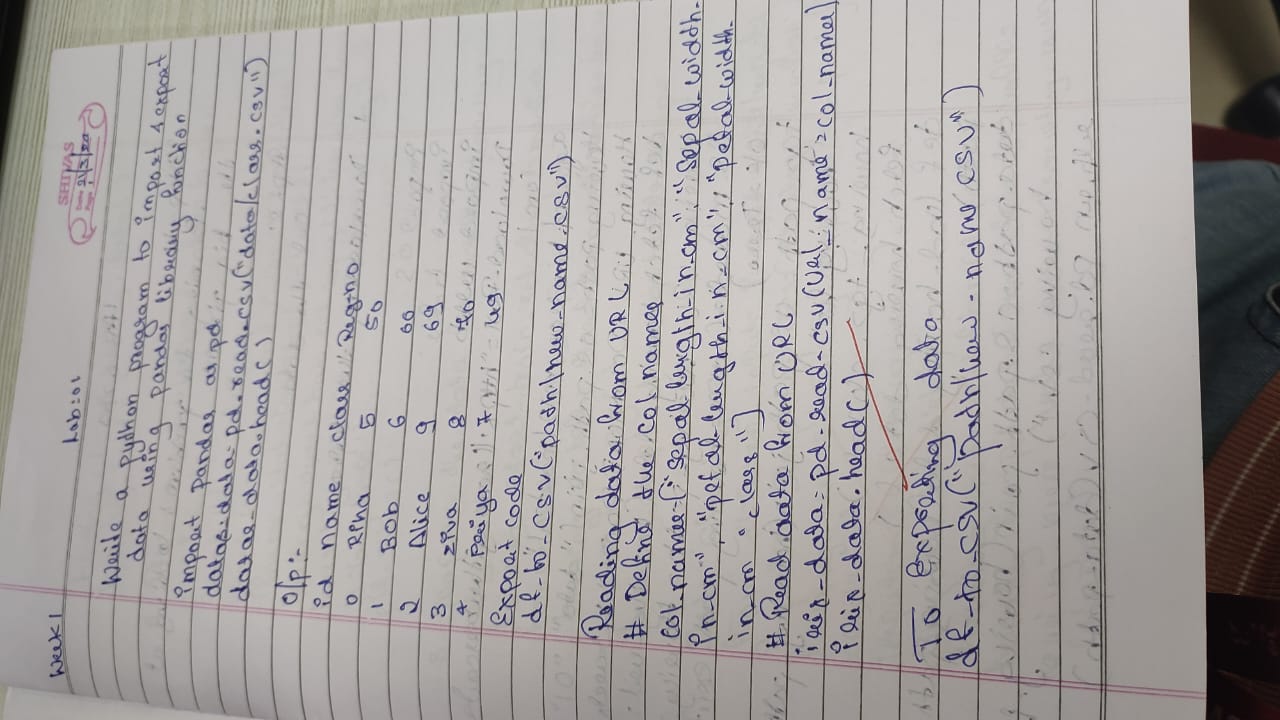 SHIVAS
Date: 21/3/24
Page: 1
Week 1 Lab:01
Write a python program to import & export
data using pandas library function
import pandas as pd
data=data.pd.read.csv("data/class.csv")
datae=data.head()
O/p:-
id name class Reg-no
0 RPha 5 50
1 Bob 6 60
2 Alice 9 69
3 ziva 8 70
4 Priya 7 49
Export code
df-to-csv("path/new-name.csv")
Reading data from URL
# Define the col names
Col-names=["sepal-length-in-cm", "sepal-width-
in-cm", "petal-length-in-cm", "petal-width-
in-cm "class"]
# Read data from URL
iris-data=pd-read-csv(Url_name=col-name)
iris-data.head()
To Exporting data
df-to_csv("path/new-name.csv")